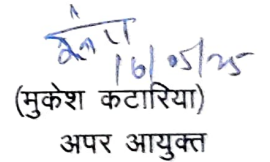 16/05/25
(मुकेश कटारिया)
अपर आयुक्त